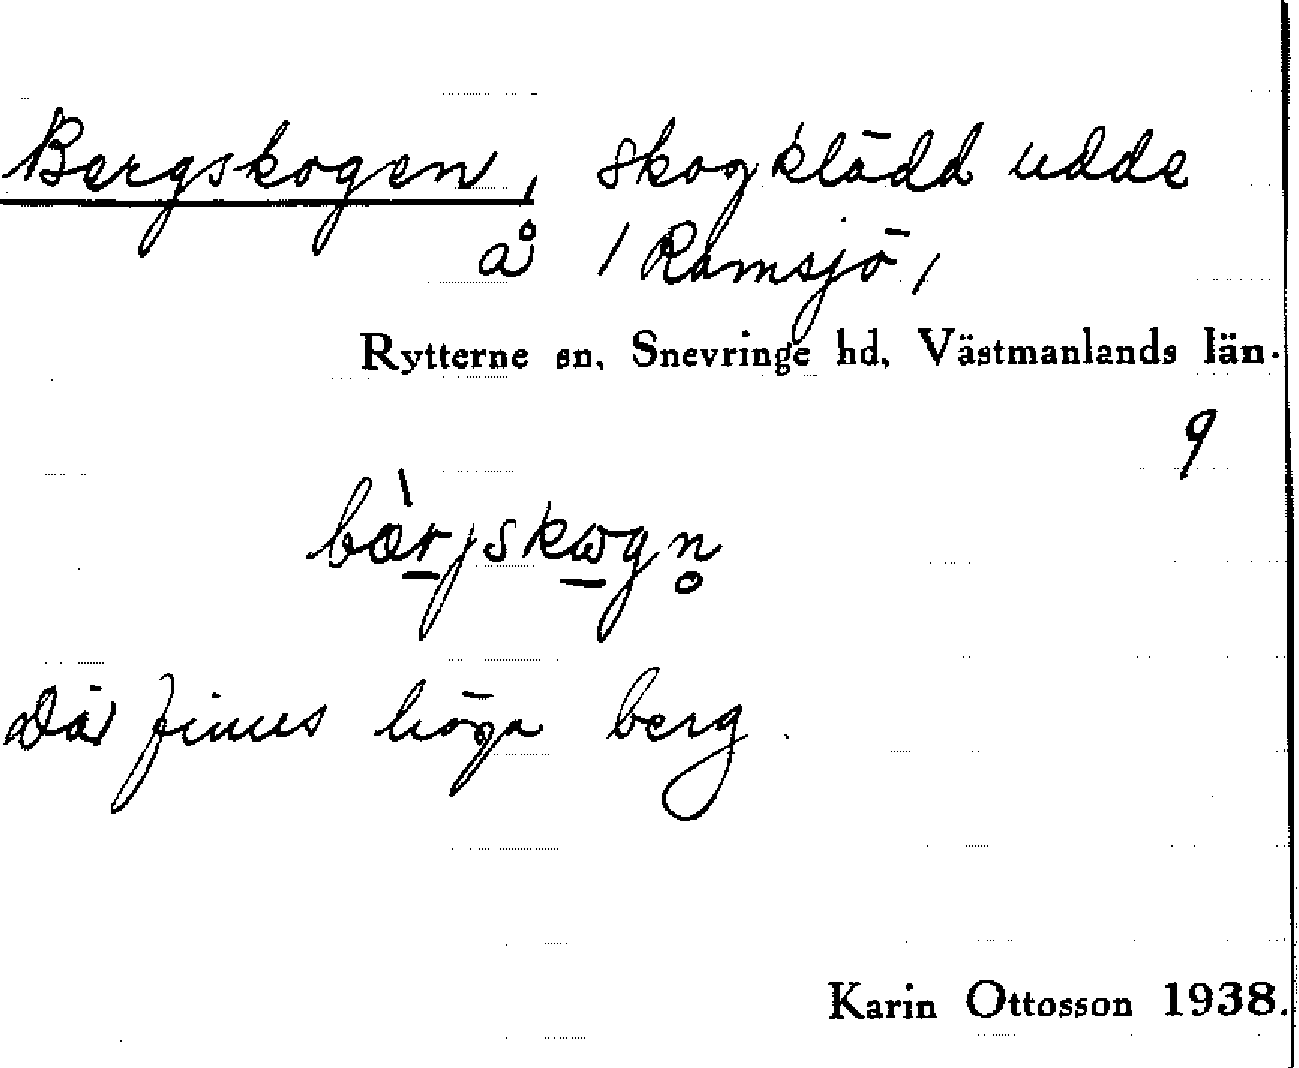 Bergskogen, skogklädd udde
å / Ramsjö /
Rytterne sn, Snevringe hd, Västmanlands län.
9
bæ̀rjskωgn̥
Där finns höga berg.
Karin Ottosson 1938.